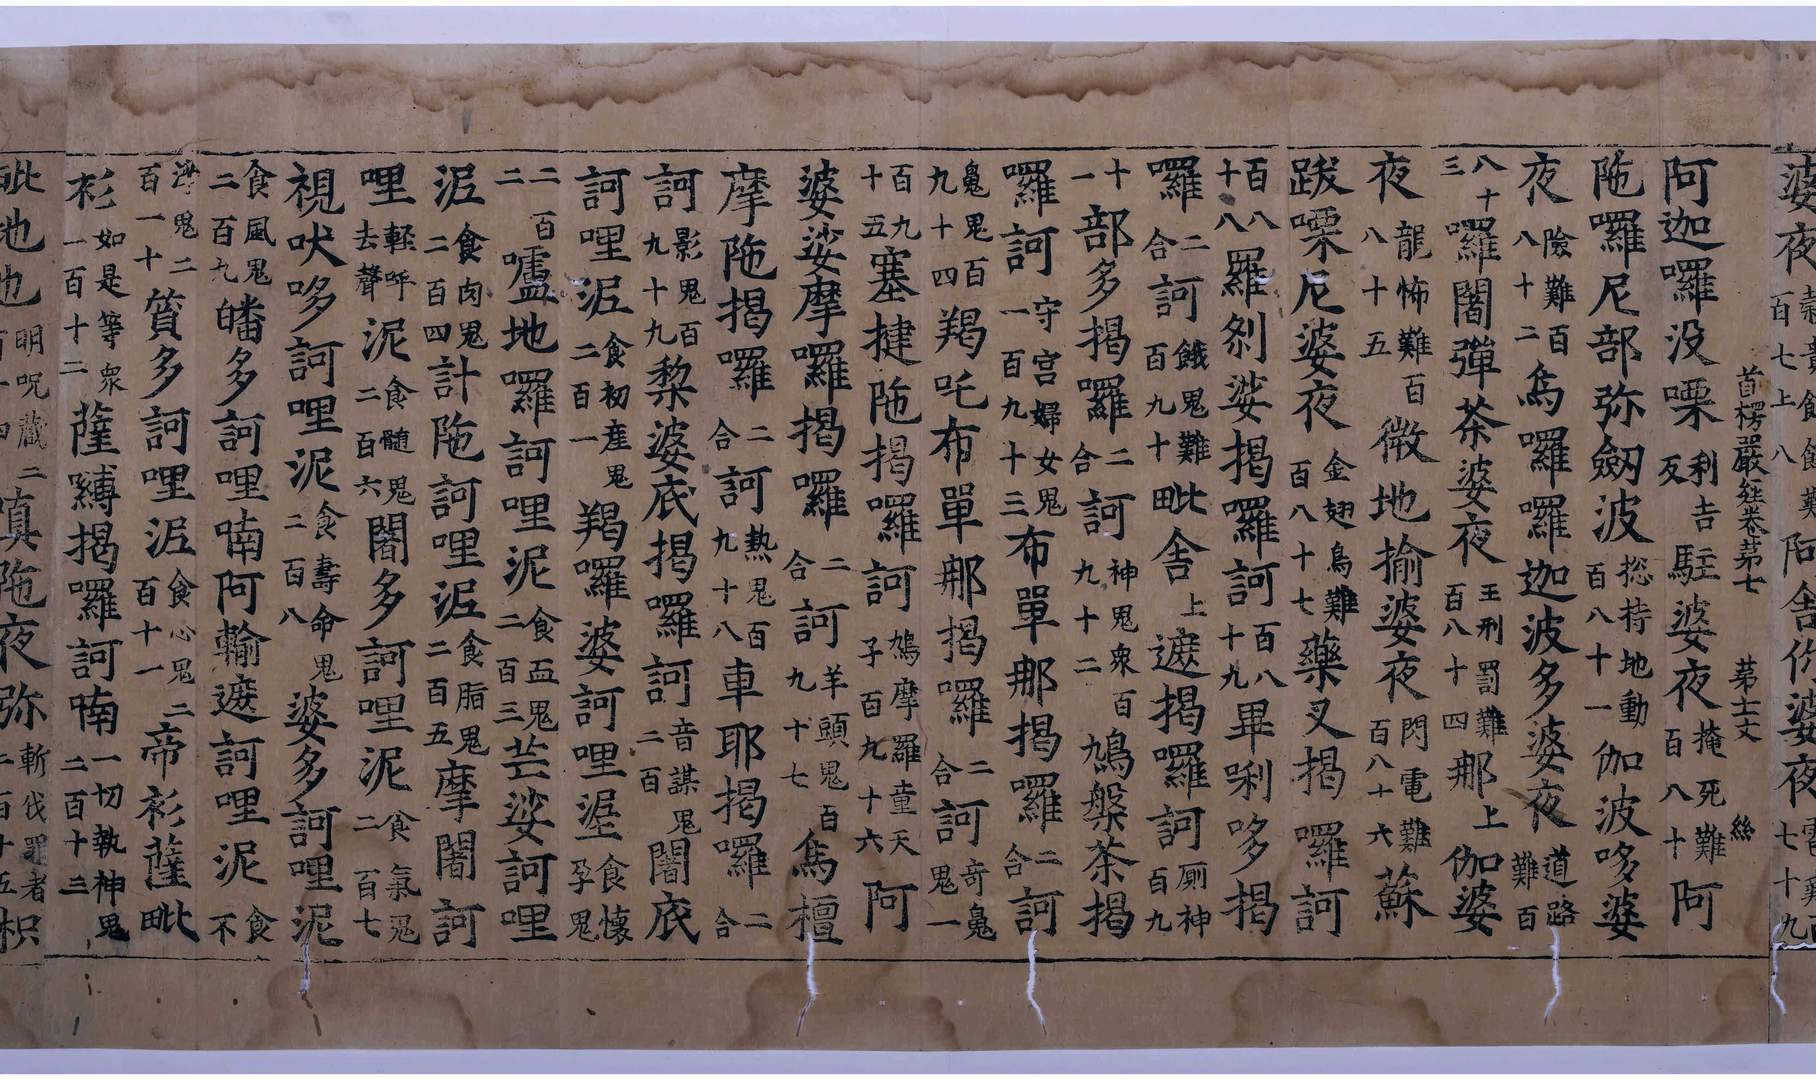 婆夜 百七上八 阿舍你婆夜 七十九
首楞嚴經卷第七 第十丈 絲
阿迦囉没㗚 利吉反 駐婆夜 掩死難百八十 阿
陁囉尼部弥劔波 揔持地動百八十一 伽波哆婆
夜 險難百八十二 烏囉囉迦波多婆夜 道路難百
八十三 囉闍彈茶婆夜 王刑罰難百八十四 那上伽婆
夜 龍怖難百八十五 微地揄婆夜 閃電難百八十六 蘇
跋㗚尼婆夜 金翅鳥難百八十七 藥叉揭囉訶
百八十八 羅刹娑揭囉訶 百八十九 畢唎多揭
囉 二合 訶 餓鬼難百九十 毗舍 上 遮揭囉訶 厠神百九
十一 部多揭囉 二合 訶 神鬼衆百九十二 鳩槃茶揭
囉訶 守宫婦女鬼一百九十三 布單那揭囉 二合 訶
㲋鬼百九十四 羯吒布單那揭囉 二合 訶 奇㲋鬼一
百九十五 塞揵陁揭囉訶 鳩摩羅童天子百九十六 阿
婆娑摩囉揭囉 二合 訶 羊頭鬼百九十七 烏檀
摩陁揭囉 二合 訶 熱鬼百九十八 車耶揭囉 二合
訶 影鬼百九十九 棃婆底揭囉訶 音謀鬼二百 闍底
訶哩泥 食初産鬼二百一 羯囉婆訶哩泥 食懷孕鬼
二百二 嚧地囉訶哩泥 食血鬼二百三 芒娑訶哩
泥 食肉鬼二百四 計陁訶哩泥 食脂鬼二百五 摩闍訶
哩 輕呼去聲 泥 食髓鬼二百六 闍多訶哩泥 食氣鬼二百七
視吠哆訶哩泥 食壽命鬼二百八 婆多訶哩泥
食風鬼二百九 皤多訶哩喃阿輸遮訶哩泥 食不
鬼二百一十 質多訶哩泥 食心鬼二百十一 帝衫薩毗
衫 如是等衆一百十二 薩縛揭囉訶喃 一切執神鬼二百十三
毗地也 明呪藏二百十四 嗔陁夜弥 斬伐罪者二百十五 枳